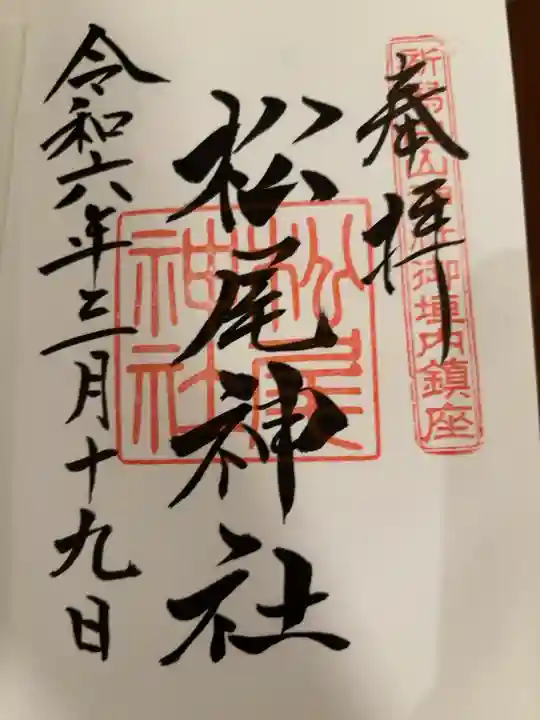 奉拝
御垣内鎮座
松尾神社
松尾
神社
令和六年三月十九日